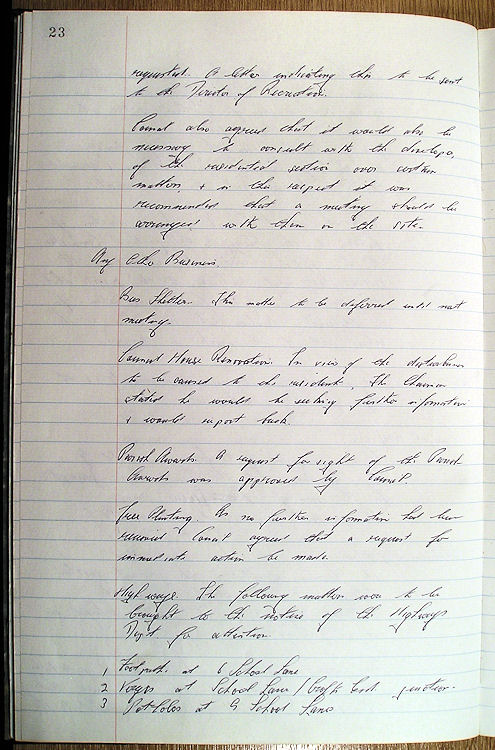 23
requested. A letter indicating this to be sent
to the Director of Recreation.
Council also agreed that it would also be
necessary to consult with the developer
of the residential section over certain
matters, & in this respect it was
recommended that a meeting should be
arranged with them on the site.
Any Other Business.
Bus Shelter. This matter to be deferred until next
meeting.
Council House Renovation. In view of the disturbance
to be caused to the residents, The Chairman
stated he would be seeking further information
& would report back.
Parish Awards. A request for sight of the Parish
Awards was approved by Council.
Tree Planting. As no further information had been
received Council agreed that a request for
immediate action be made.
Highways. The following matters were to be
brought to the notice of the Highways
Dept for attention.
1 Footpath at 6 School Lane
2 Verges at School Lane / Croft End junction.
3 Pot-holes at 9 School Lane